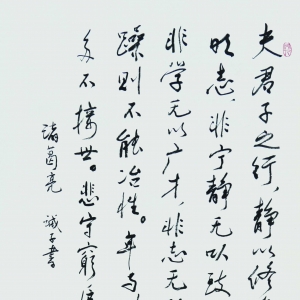 夫君子之行，静以修
明志，非宁静无以致
非学无以广才，非志无
躁则不能冶性。年与
多不接世。悲守窮
诸葛亮 诫子书